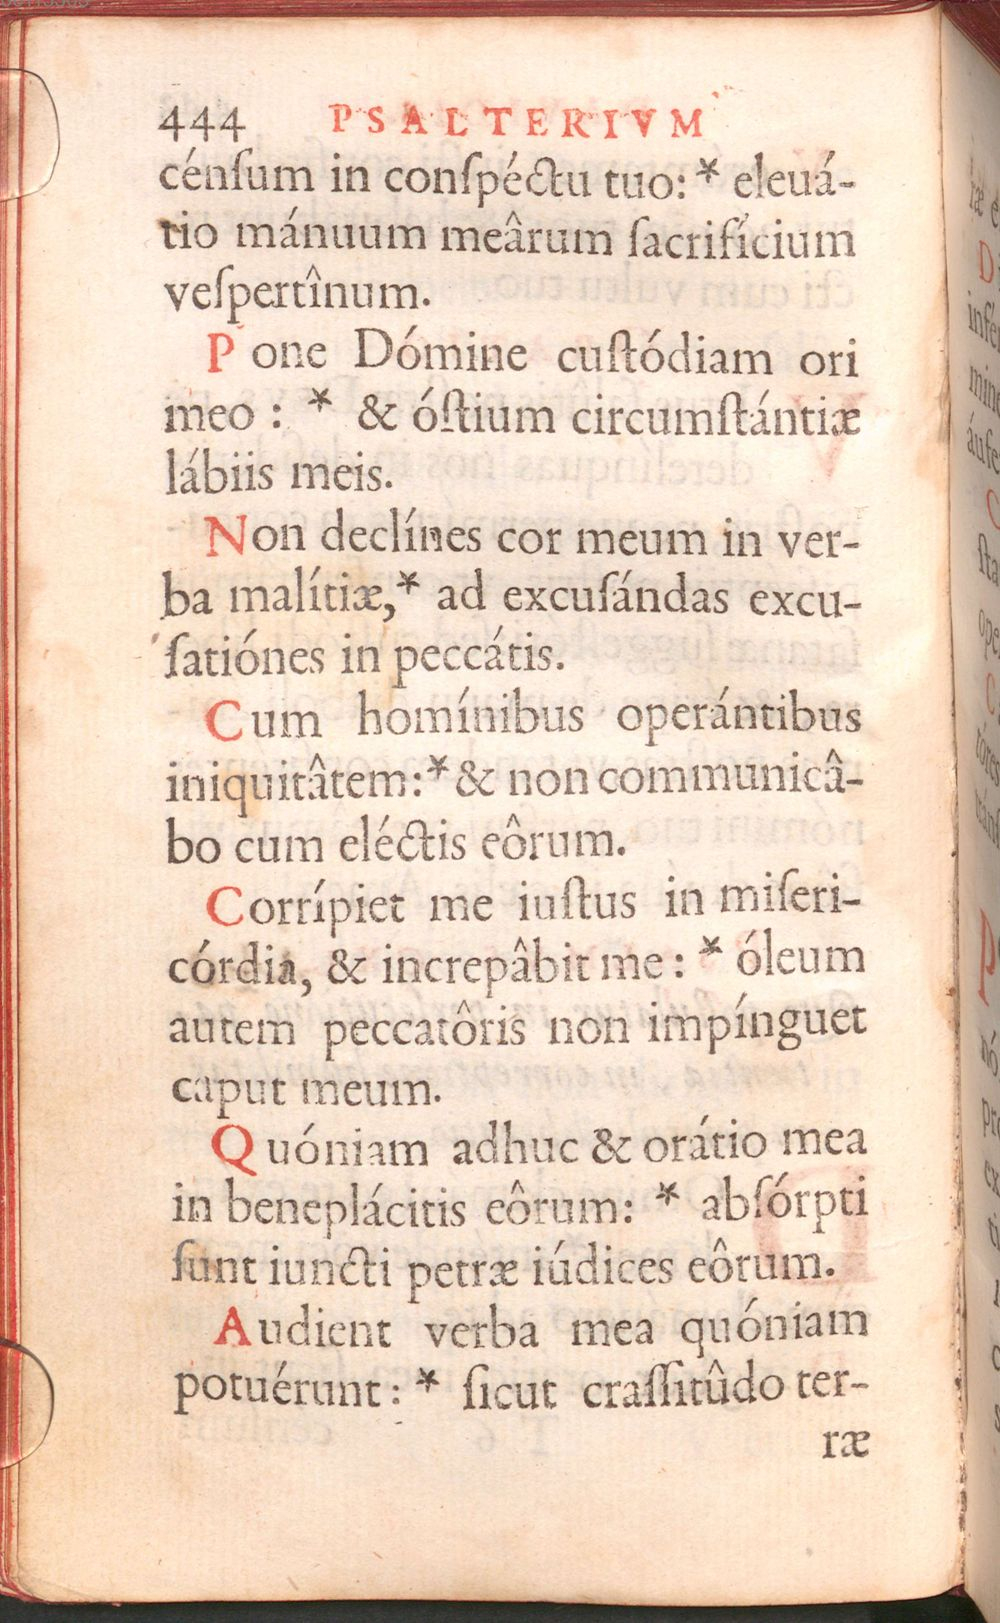 444 PSALTERIVM
cénſum in conſpéctu tuo: * eleuá-
tio mánuum meârum ſacrifícium
veſpertînum.
Pone Dómine cuſtódiam ori
meo : * & óſtium circumſtántiæ
lábiis meis.
Non declínes cor meum in ver-
ba malítiæ,* ad excuſándas excu-
ſatiónes in peccátis.
Cum homínibus operántibus
iniquitâtem:* & non communicâ-
bo cum eléctis eôrum.
Corrípiet me iuſtus in miſeri-
córdia, & increpâbit me : * óleum
autem peccatôris non impínguet
caput meum.
Quóniam adhuc & orátio mea
in beneplácitis eôrum: * abſórpti
ſunt iuncti petræ iúdices eôrum.
Audient verba mea quóniam
potuérunt : * ſicut craſſitûdo ter-
ræ